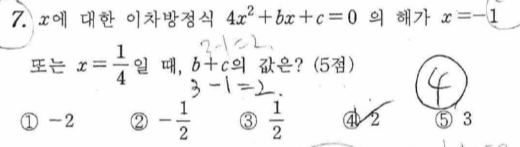 7. x에 대한 이차방정식 4x²+bx+c=0 의 해가 x=-1
3-1=2.
또는 x=1/4일 때, b+c의 값은? (5점)
3-1=2.
④
① -2 ② -1/2 ③ 1/2 ④ 2 ⑤ 3